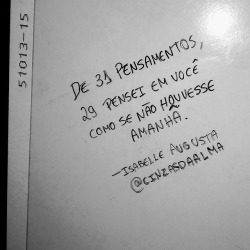 51013-15
DE 31 PENSAMENTOS,
29 PENSEI EM VOCÊ
COMO SE NÃO HOUVESSE
AMANHÃ.
—ISABELLE AUGUSTA
@CINZASDAALMA